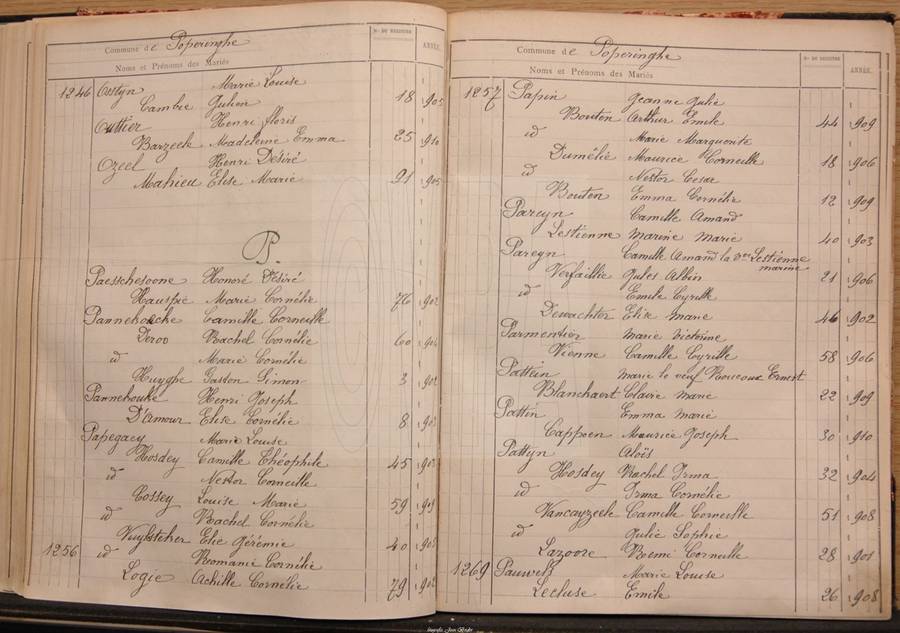 Commune de Poperinghe
Noms et Prénoms des Mariés
Nos DU REGISTRE
ANNÉE.
1246 Ostyn Marie Louise
Cambie Julien 18 905
Outtier Henri Floris
Barzeele Madeleine Emma 25 910
Ozeel Henri Désiré
Mahieu Elise Marie 91 905
P.
Paesschesoone Honoré Désiré
Hauspie Marie Cornélie 76 902
Pannekoucke Camille Corneille
Deroo Rachel Cornélie 60
id Marie Cornélie
Huyghe Gaston Simon 3 902
Pannekouke Henri Joseph
D'Amour Elise Cornélie 8
Papegaey Marie Louise
Hosdey Camille Théophile 45
id Nestor Corneille
Cossey Louise Marie 59
id Rachel Cornélie
Vuylsteker Elie Gérémie 40
1256 id Romanie Cornélie
Logie Achille Cornélie 79
Commune de Poperinghe
Noms et Prénoms des Mariés
Nos DU REGISTRE
ANNÉE.
1257 Papin Jeanne Julie
Bouton Arthur Emile 44 909
id Marie Marguerite
Dumélie Maurice Corneille 18 906
id Nestor Cesar
Bouton Emma Cornélie 12 909
Pareyn Camille Amand
Lestienne Marine Marie 40 903
Pareyn Camille Amand la Lestienne
marine
Verfaillie Jules Albin 21 906
id Emile Cyrille
Dewachter Elise Marie 46 902
Parmentier Marie Victoire
Vienne Camille Cyrille 58 906
Pattein Marie le veuf Ernest
Blanchaert Claire Marie 22 909
Pattin Emma Marie
Cappoen Maurice Joseph 30 910
Pattyn Aloïs
Hosdey Rachel Irma 32 904
id Irma Cornélie
Vancayzeele Camille Corneille 51 908
id Julie Sophie
Lazoore Remi Corneille 28 901
1269 Pauwels Marie Louise
Lecluse Emile 26 908